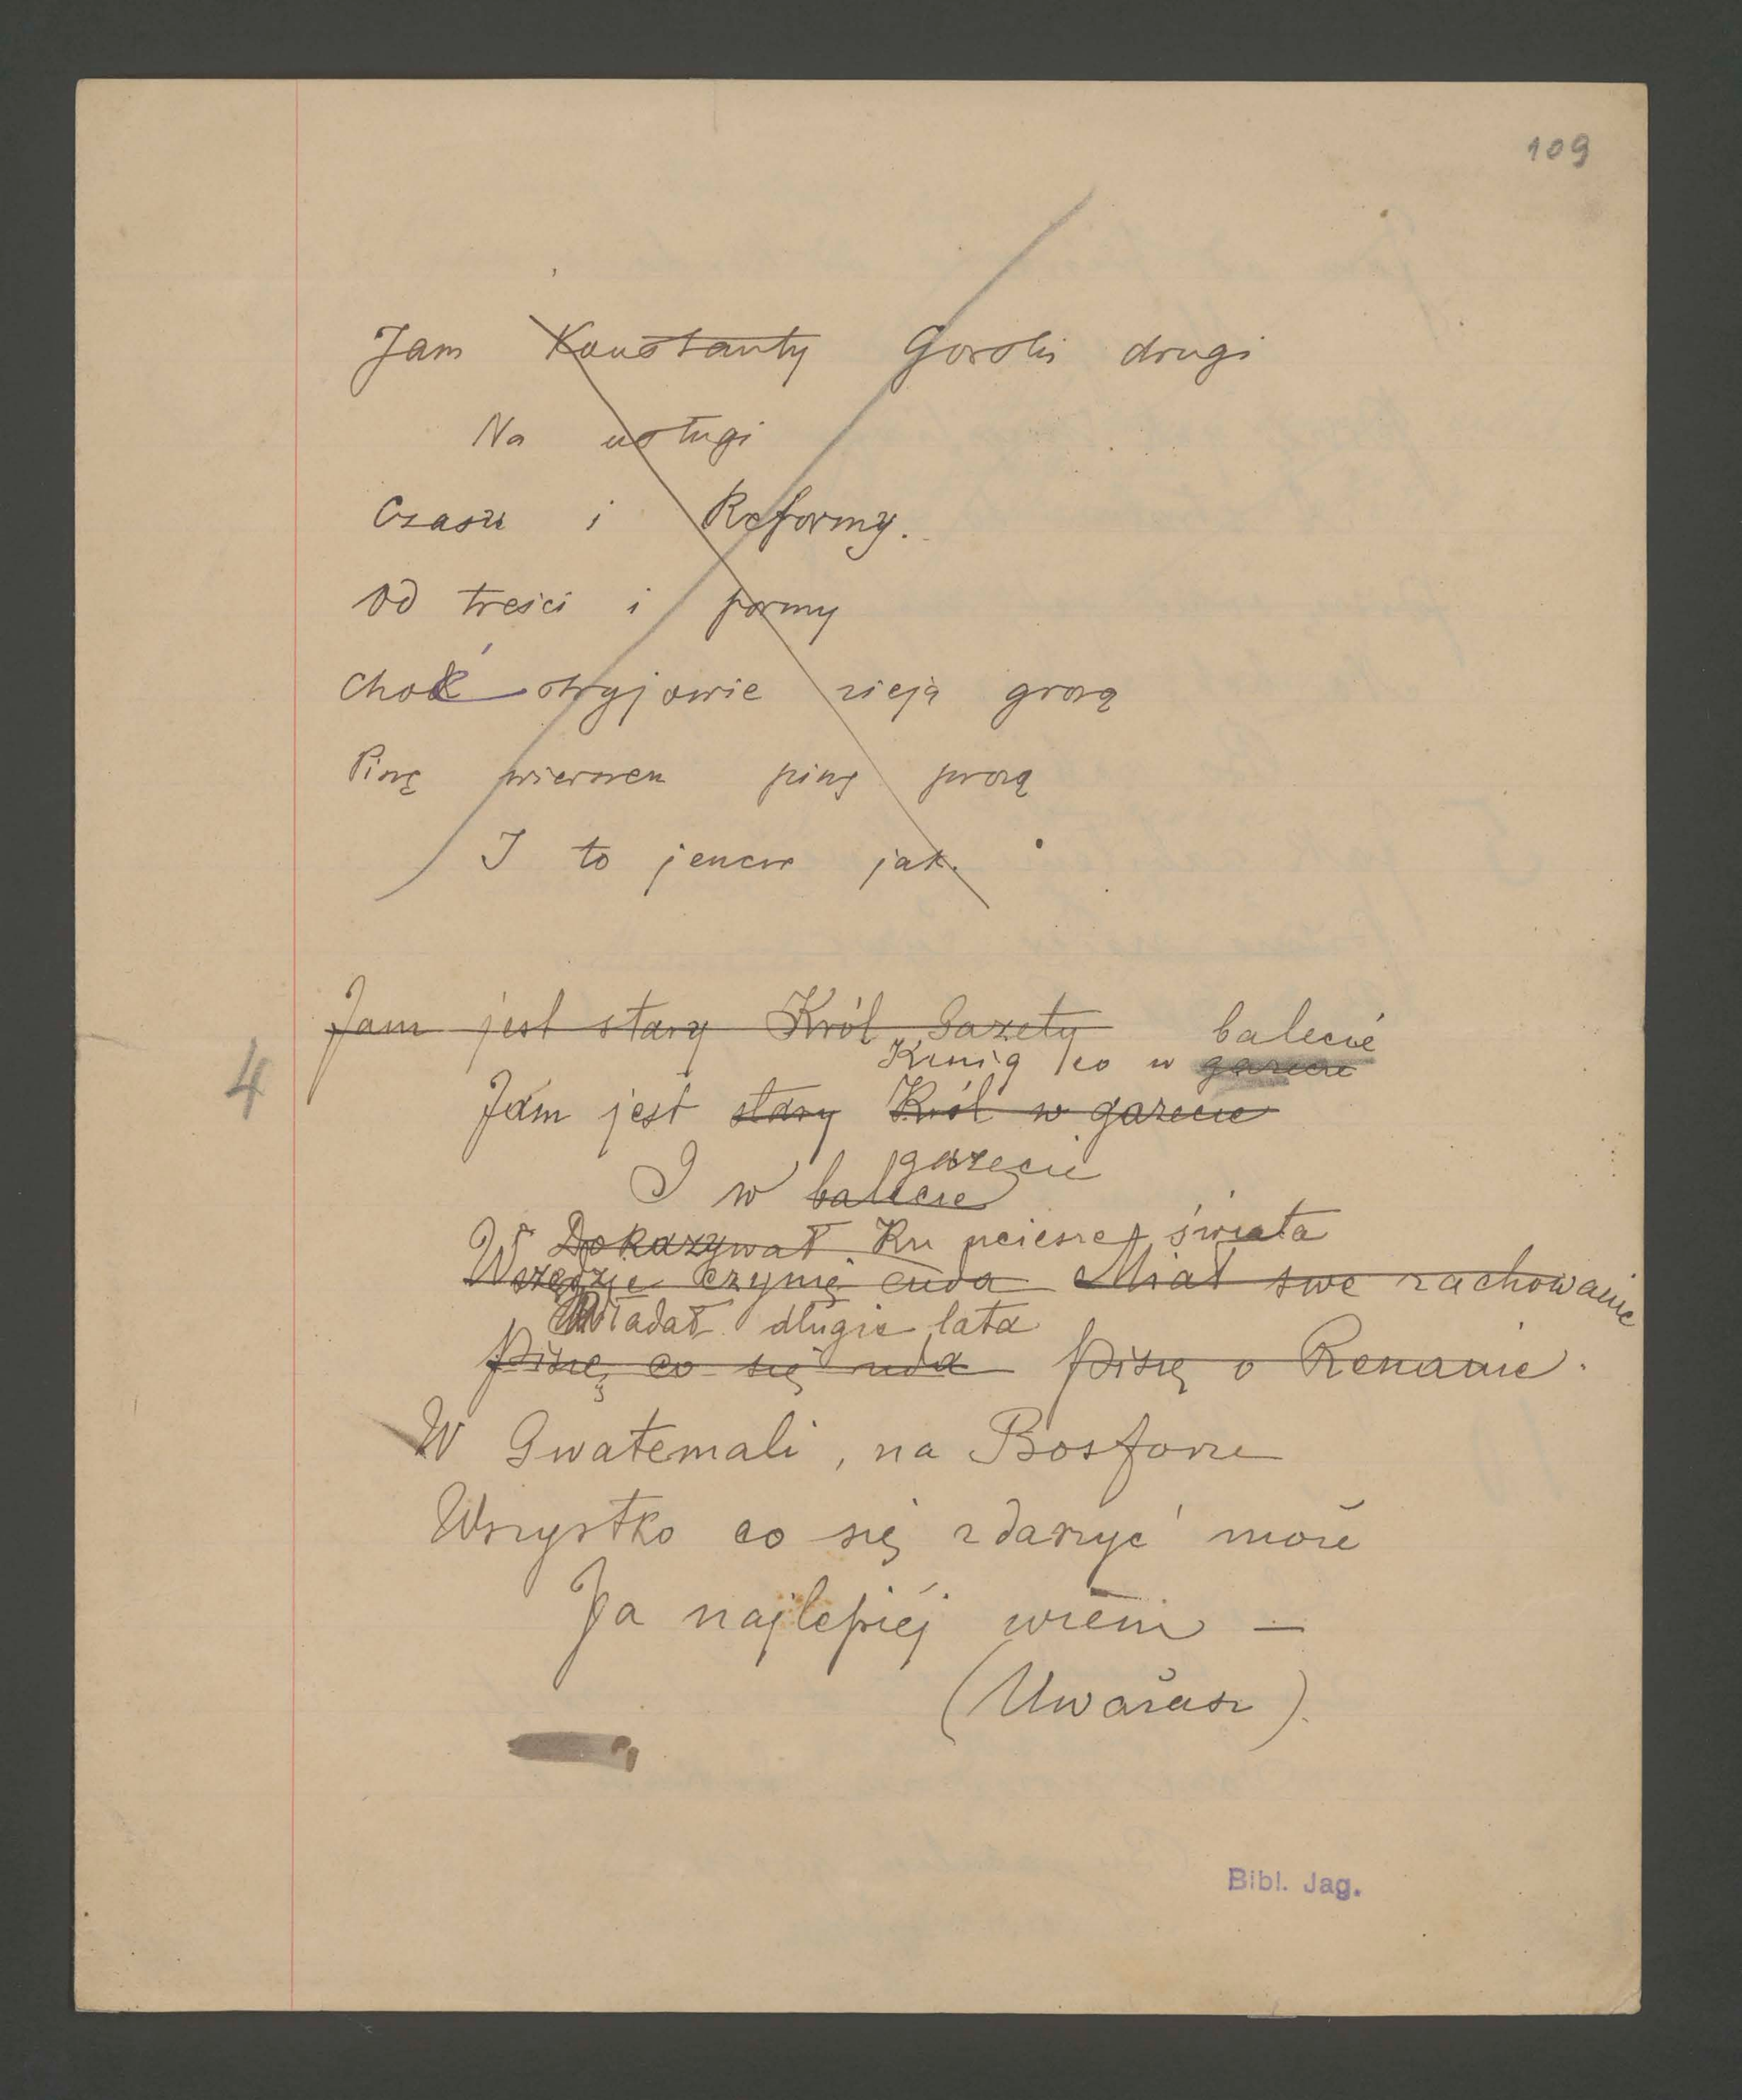 109
Jam Konstanty Gorski drugi
Na usługi
Czasu i Reformy.
Od treści i formy
Choć stryjowie zieją grozą
Piszę wierszem piszę prozą
I to jeszcze jak.
Jam jest stary Król Gazety balecie
Kenig co w gazecie
4
Jam jest stary Król w gazecie
gazecie
I w balecie
W Dokazywał Ku uciesze świata
Wszędzie czynię cuda Miał swe zachowanie
Władał długie lata
Piszę co się uda piszę o Renanie.
W Gwatemali, na Bosforze
Wszystko co się zdarzyć może
Ja najlepiéj wiém —
(Uważasz).
Bibl. Jag.